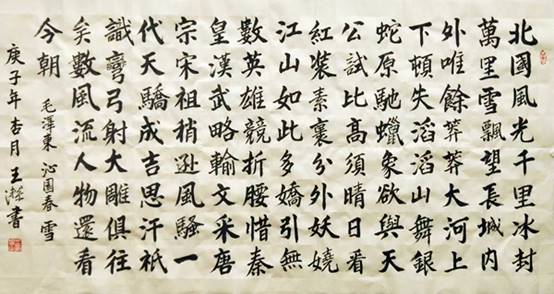 北國風光千里冰封
萬里雪飄望長城内
外唯餘莽莽大河上
下頓失滔滔山舞銀
蛇原馳蠟象欲與天
公試比高須晴日看
紅裝素裹分外妖嬈
江山如此多嬌引無
數英雄競折腰惜秦
皇漢武略輸文采唐
宗宋祖稍遜風騷一
代天驕成吉思汗衹
識彎弓射大雕俱往
矣數風流人物還看
今朝 毛澤東 沁園春 雪
庚子年杏月王書